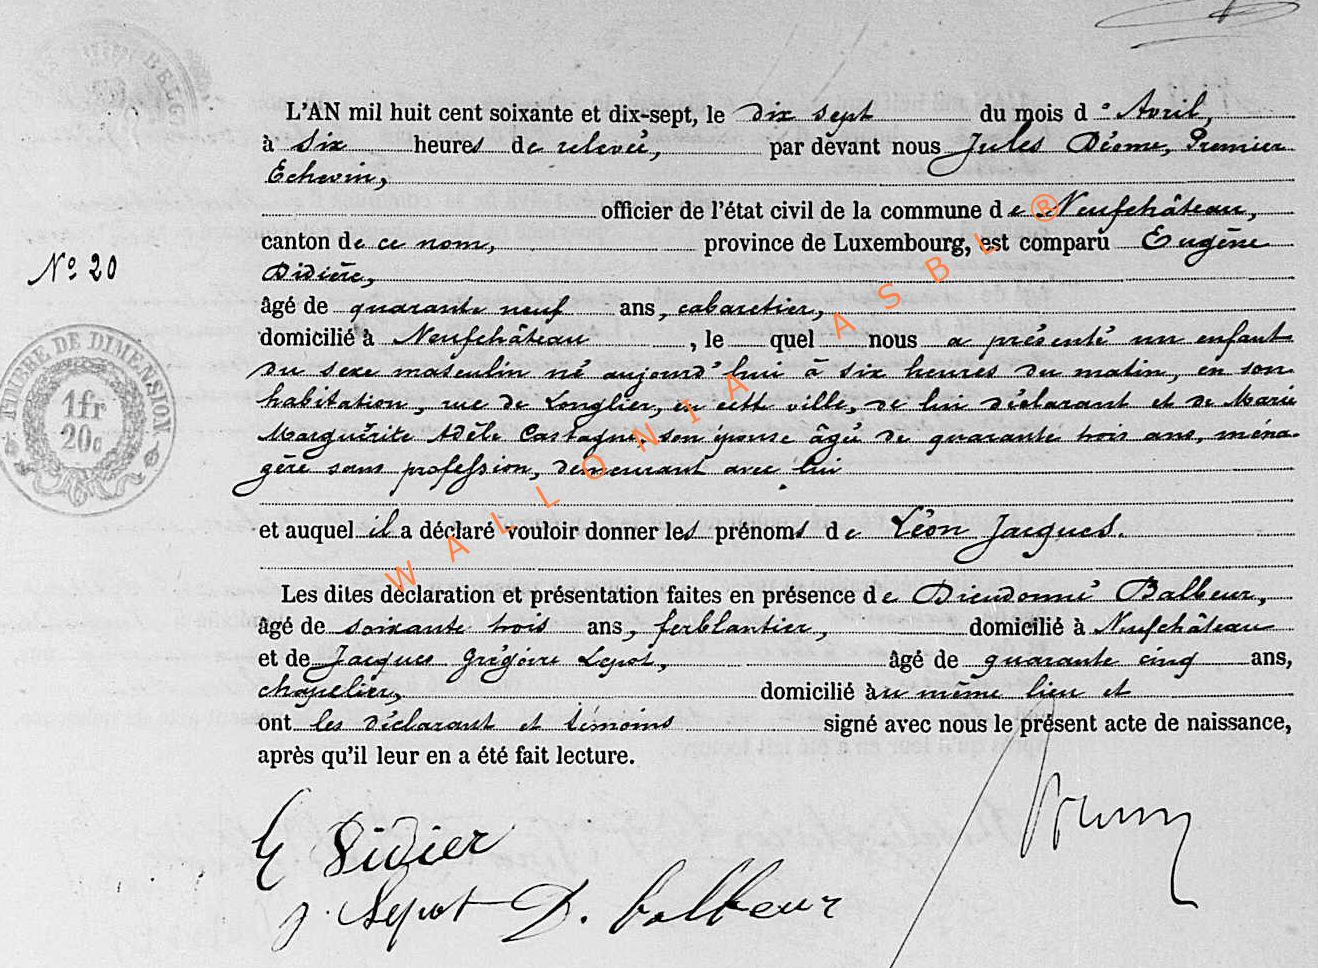 L'AN mil huit cent soixante et dix-sept, le dix sept du mois d' Avril,
à six heures de relevée, par devant nous Jules Déome, Premier
Echevin,
officier de l'état civil de la commune de Neufchâteau,
canton de ce nom, province de Luxembourg, est comparu Eugène
Didière,
N° 20
âgé de quarante neuf ans, cabaretier,
domicilié à Neufchâteau, le quel nous a présenté un enfant
du sexe masculin né aujourd'hui à six heures du matin, en son
habitation, rue de Longlier, en cette ville, de lui déclarant et de Marie
Marguérite Adèle Castagne, son épouse âgée de quarante trois ans, ména-
gère sans profession, demeurant avec lui
et auquel il a déclaré vouloir donner les prénoms de Léon Jacques.
Les dites déclaration et présentation faites en présence de Dieudonné Balbeur,
âgé de soixante trois ans, ferblantier, domicilié à Neufchâteau
et de Jacques Grégoire Lepot, âgé de quarante cinq ans,
chapelier, domicilié au même lieu et
ont les déclarant et témoins signé avec nous le présent acte de naissance,
après qu'il leur en a été fait lecture.
TIMBRE DE DIMENSION
1fr
20c
WALLONIA ASBL ®
E Didier
J. Lepot D. balbeur